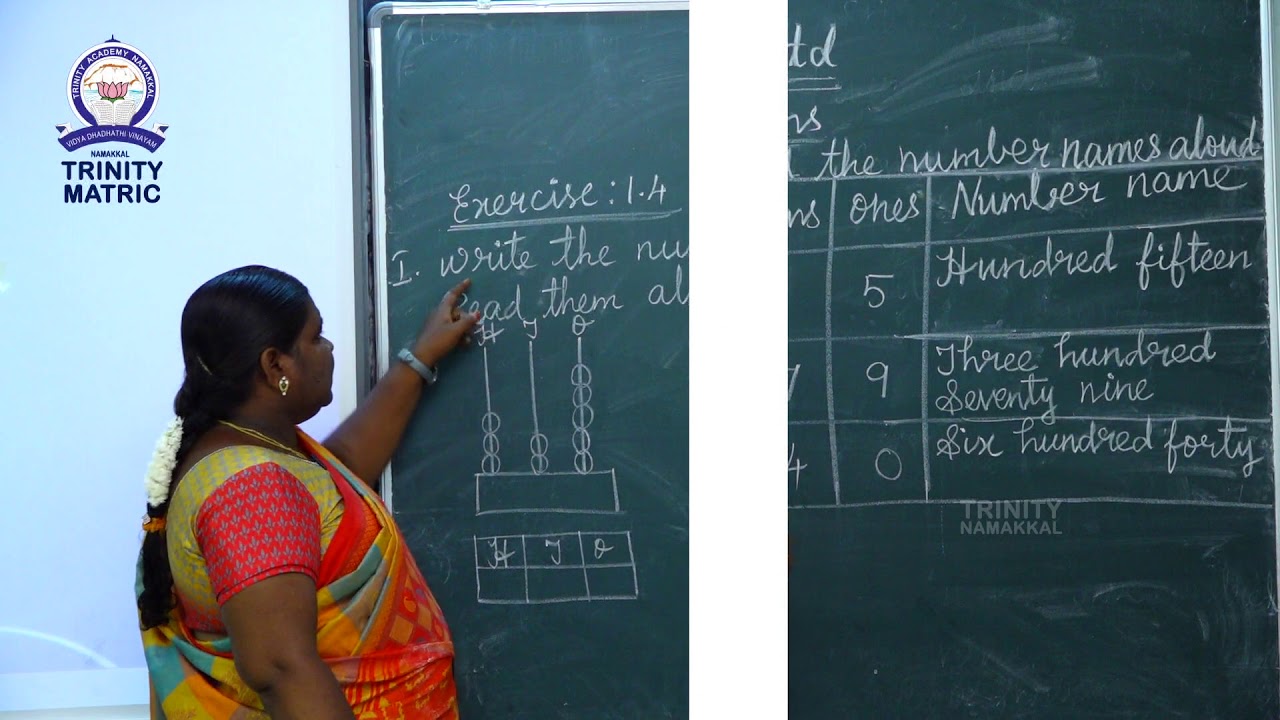 TRINITY ACADEMY NAMAKKAL
VIDYA DHADHATHI VINAYAM
NAMAKKAL
TRINITY
MATRIC
Exercise : 1.4
I. Write the nu
Read them al
H T O
H T O
td
ns
the number names aloud
ns ones Number name
5 Hundred fifteen
7 9 Three hundred
Seventy nine
4 0 Six hundred forty
TRINITY
NAMAKKAL